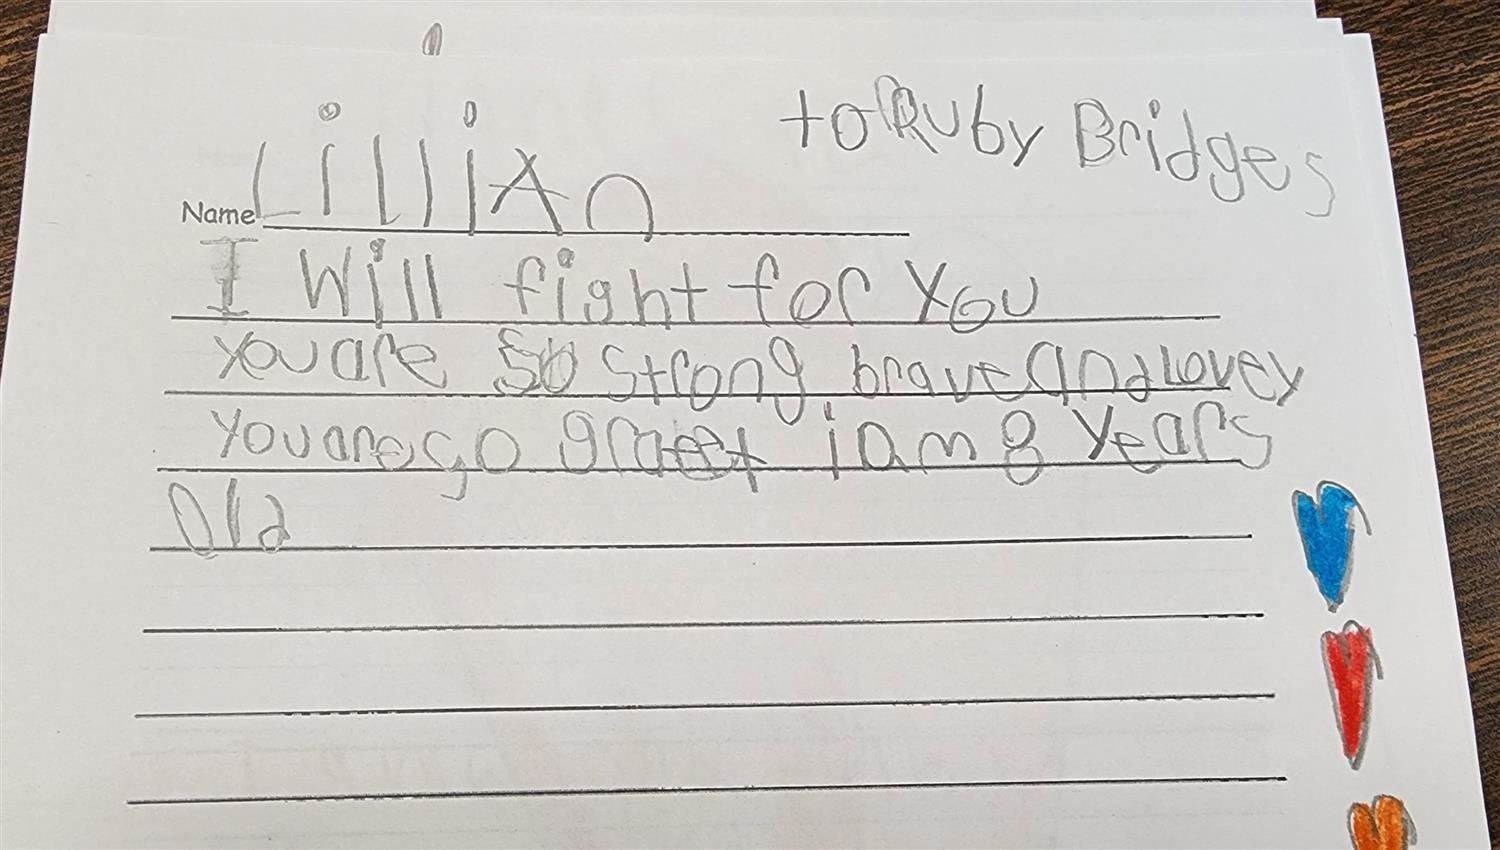 to Ruby Bridges
Name Lillian
I Will fight for You
You are so strong brave and Lovey
You are so graeet i am 8 years
old